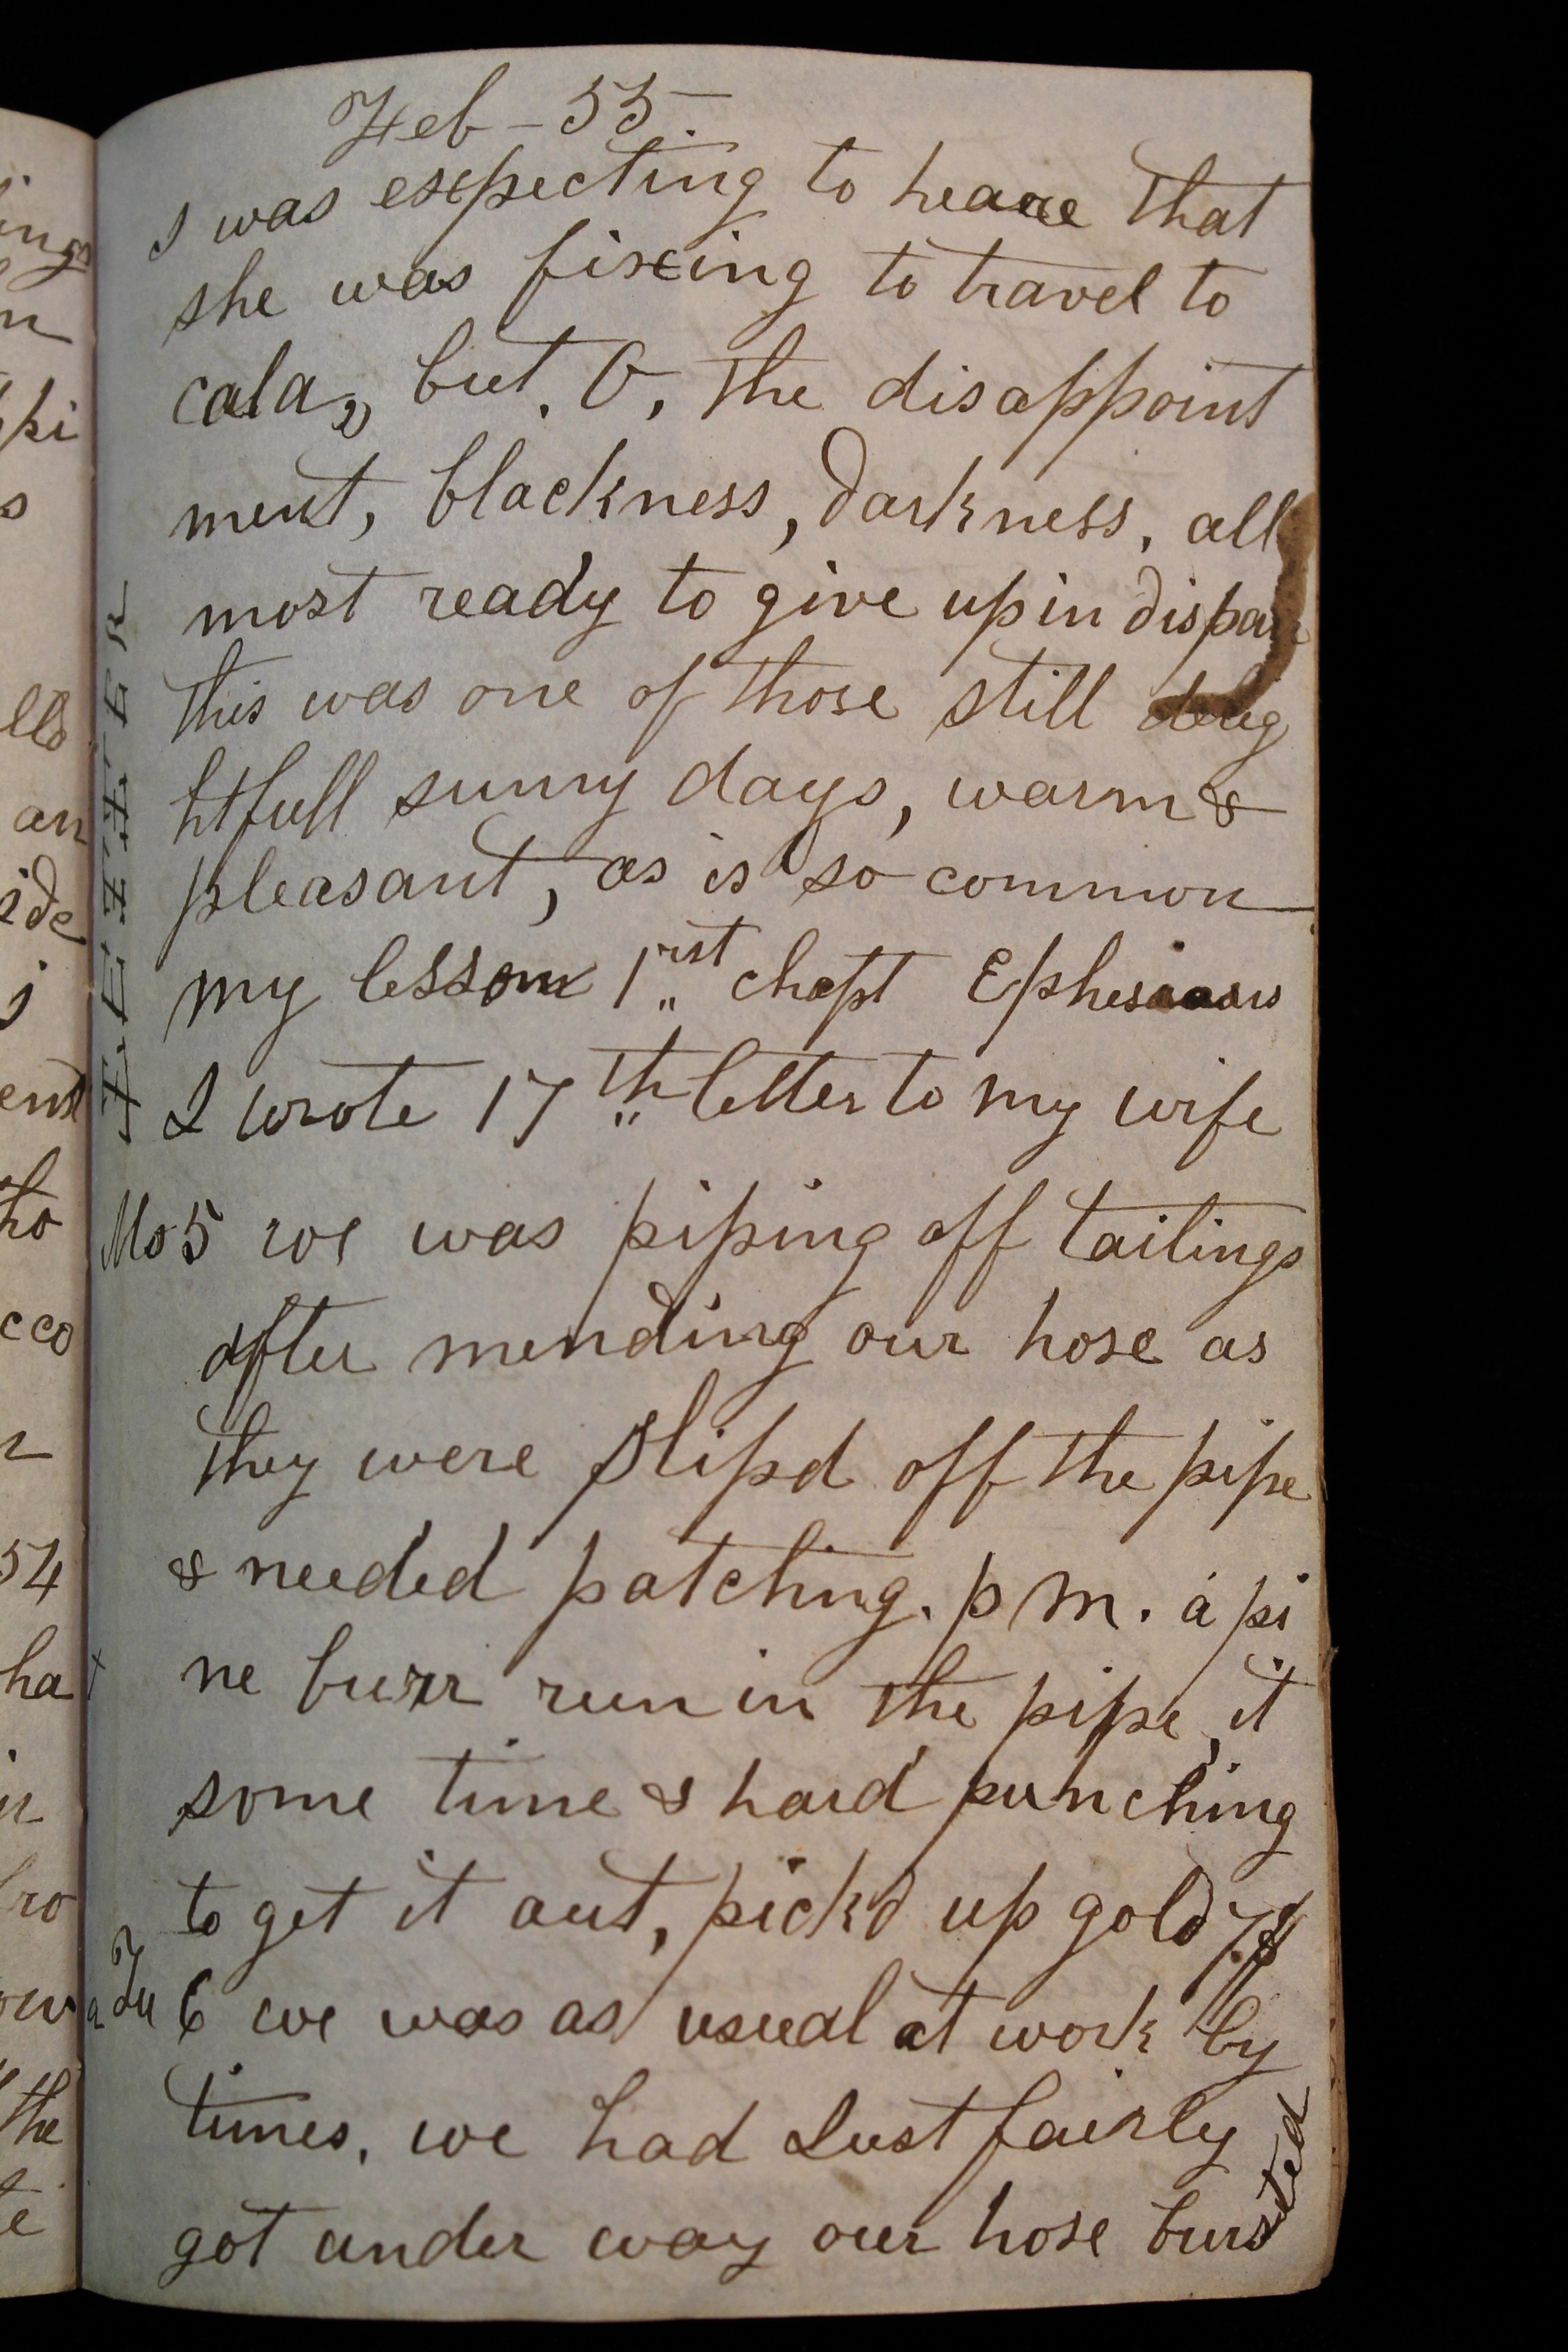 Feb - 55 -
I was expecting to heare that
she was fixing to travel to
cala,, but, O, the disappoint
ment, blackness, darkness, all
most ready to give up in dispair
this was one of those still delig
htfull sunny days, warm &
pleasant, as is so common
my lesson 1rst chapt Ephesians
I wrote 17th letter to my wife
Mo 5 we was piping off tailings
after mending our hose as
they were slipd off the pipe
& needed patching. p m. a pi
ne burr run in the pipe, it
some time & hard punching
to get it out, pick'd up gold
Tu 6 we was as usual at work by
times, we had Just fairly
got under way our hose bursted
LETTER